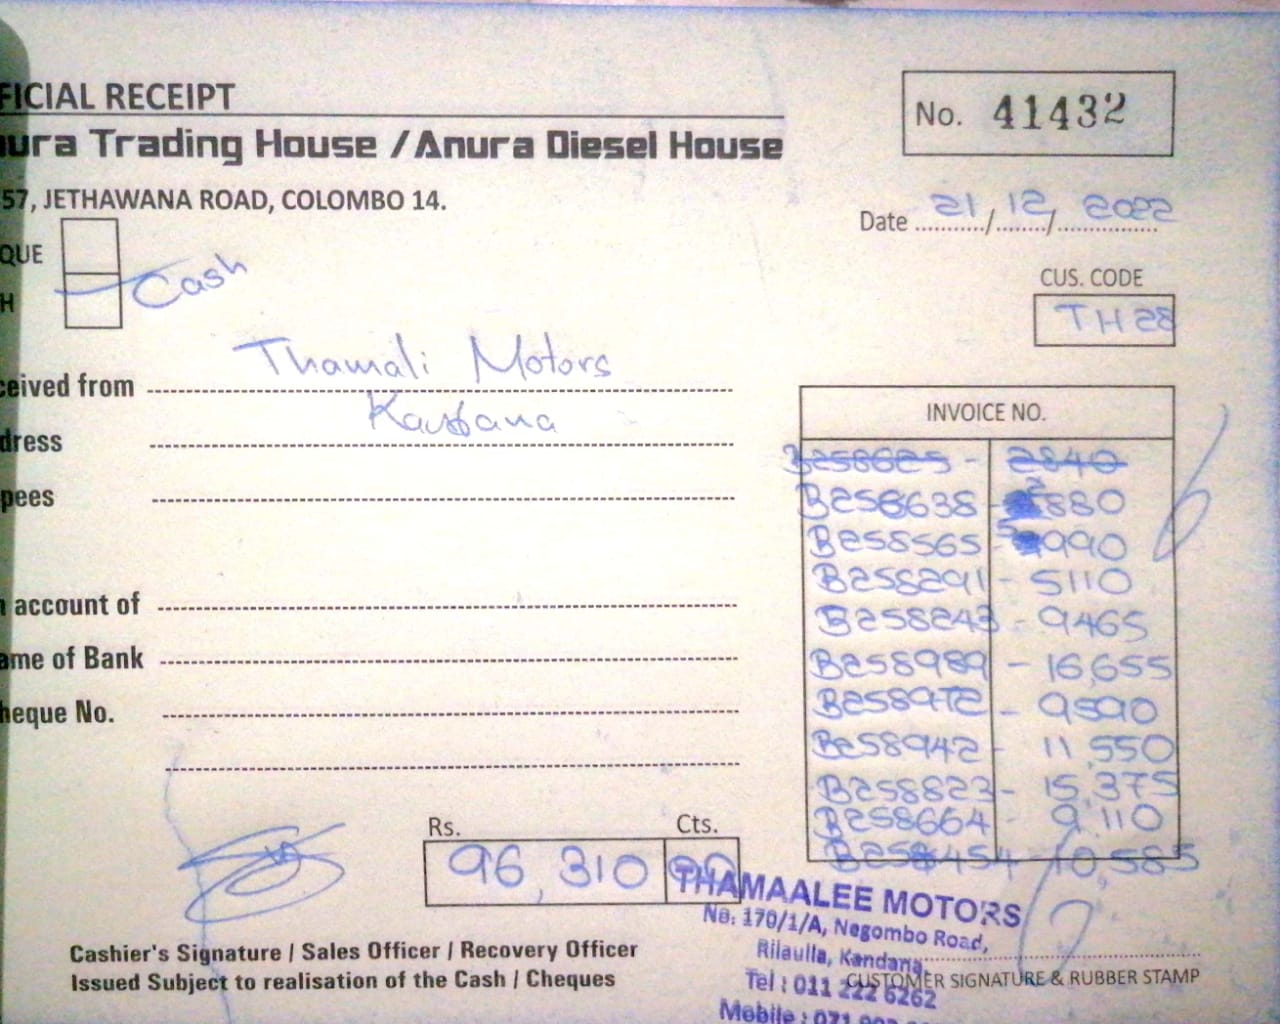 FICIAL RECEIPT
No. 41432
ura Trading House / Anura Diesel House
57, JETHAWANA ROAD, COLOMBO 14.
Date 21/12/2022
QUE
H Cash
CUS. CODE
TH28
ceived from Thamali Motors
dress
pees
INVOICE NO.
B258625 - 2840
B258638 - 880
B258565 - 990
B258291 - 5110
B258243 - 9465
B258989 - 16,655
B258972 - 9590
B258942 - 11,550
B258823 - 15,375
B258664 - 9,110
B258454 - 10,585
account of
ame of Bank
heque No.
Rs. Cts.
96,310
THAMAALEE MOTORS
No: 170/1/A, Negombo Road,
Rilaulla, Kandana
Tel : 011 222 6262
Mobile : 071
Cashier's Signature / Sales Officer / Recovery Officer
Issued Subject to realisation of the Cash / Cheques
CUSTOMER SIGNATURE & RUBBER STAMP